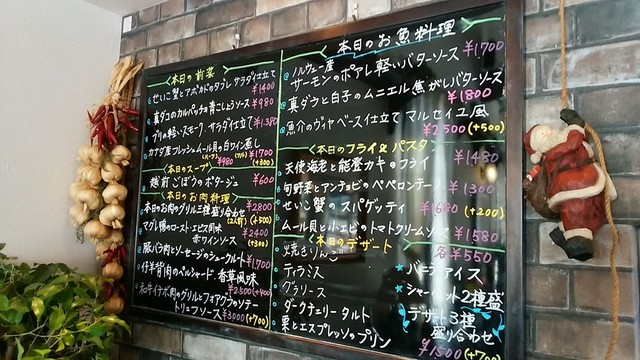 本日の前菜
せいこ蟹とアボカドのタブレ サラダ仕立て ¥1400
真ダコのカルパッチョ 青こしょうソース ¥980
ブリの軽いスモーク、サラダ仕立て ¥1380
カナダ産フレッシュムール貝の白ワイン蒸し
(ハーフ) ¥980 (フル) ¥1700 (+300)
本日のスープ
越前ごぼうのポタージュ ¥600
本日のお肉料理
本日のお肉のグリル三種盛り合わせ ¥2800
(2人前) (+500)
マグレ鴨のロースト・エピス風味 ¥2400
赤ワインソース (+300)
豚バラ肉とソーセージのシュークルート ¥1700
仔羊背肉のペルシヤード・香草風味
¥2500 (+400)
和牛イチボ肉のグリルとフォアグラのソテー
トリュフソース ¥3000 (+700)
本日のお魚料理
ノルウェー産
サーモンのポアレ 軽いバターソース ¥1700
真ダラと白子のムニエル 焦がしバターソース
¥1800
魚介のヴィヤベース仕立て マルセイユ風
¥2500 (+500)
本日のフライ&パスタ
天使海老と能登カキのフライ ¥1480
旬野菜とアンチョビのペペロンテーノ ¥1300
せいこ蟹のスパゲッティ ¥1680 (+200)
ムール貝と小エビのトマトクリームソース ¥1580
本日のデザート 各¥550
焼きりんご
ティラミス
グラソース
ダークチェリータルト
栗とエスプレッソのプリン
★バニラアイス
★シャーベット2種盛
デザート3種
盛り合わせ
¥1500 (+700)